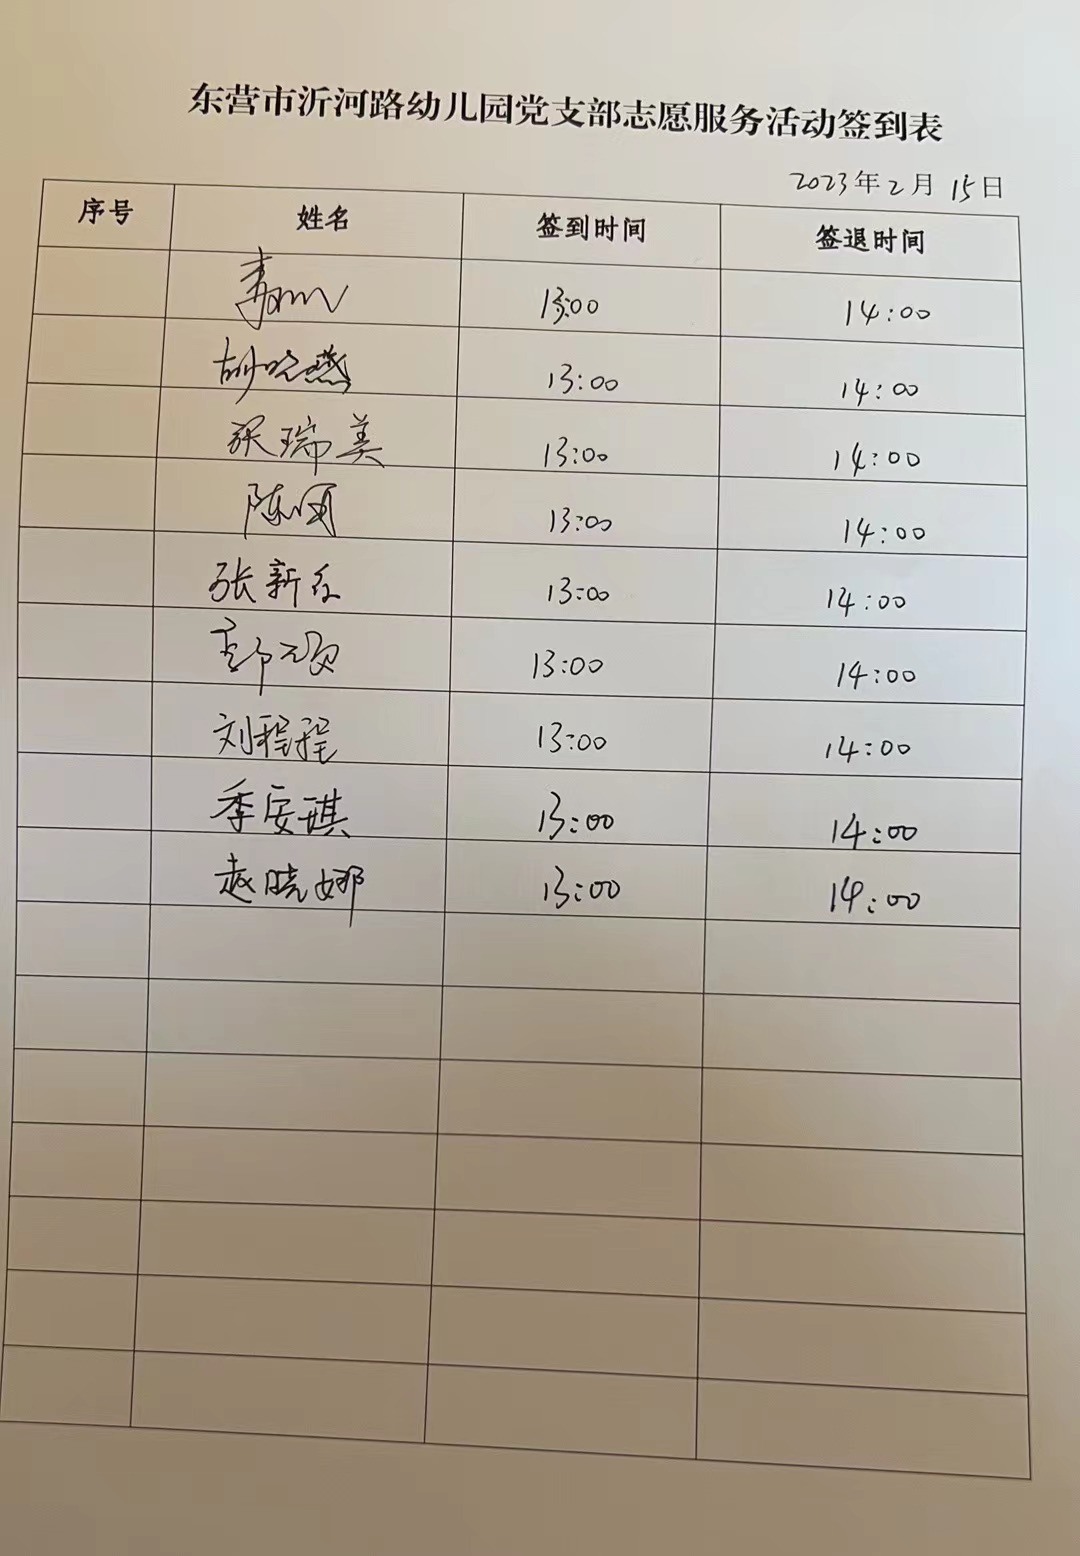 东营市沂河路幼儿园党支部志愿服务活动签到表
2023年2月15日
序号 姓名 签到时间 签退时间
13:00 14:00
胡晓燕 13:00 14:00
张瑞美 13:00 14:00
陈 13:00 14:00
张新红 13:00 14:00
13:00 14:00
刘程程 13:00 14:00
季安琪 13:00 14:00
赵晓娜 13:00 14:00